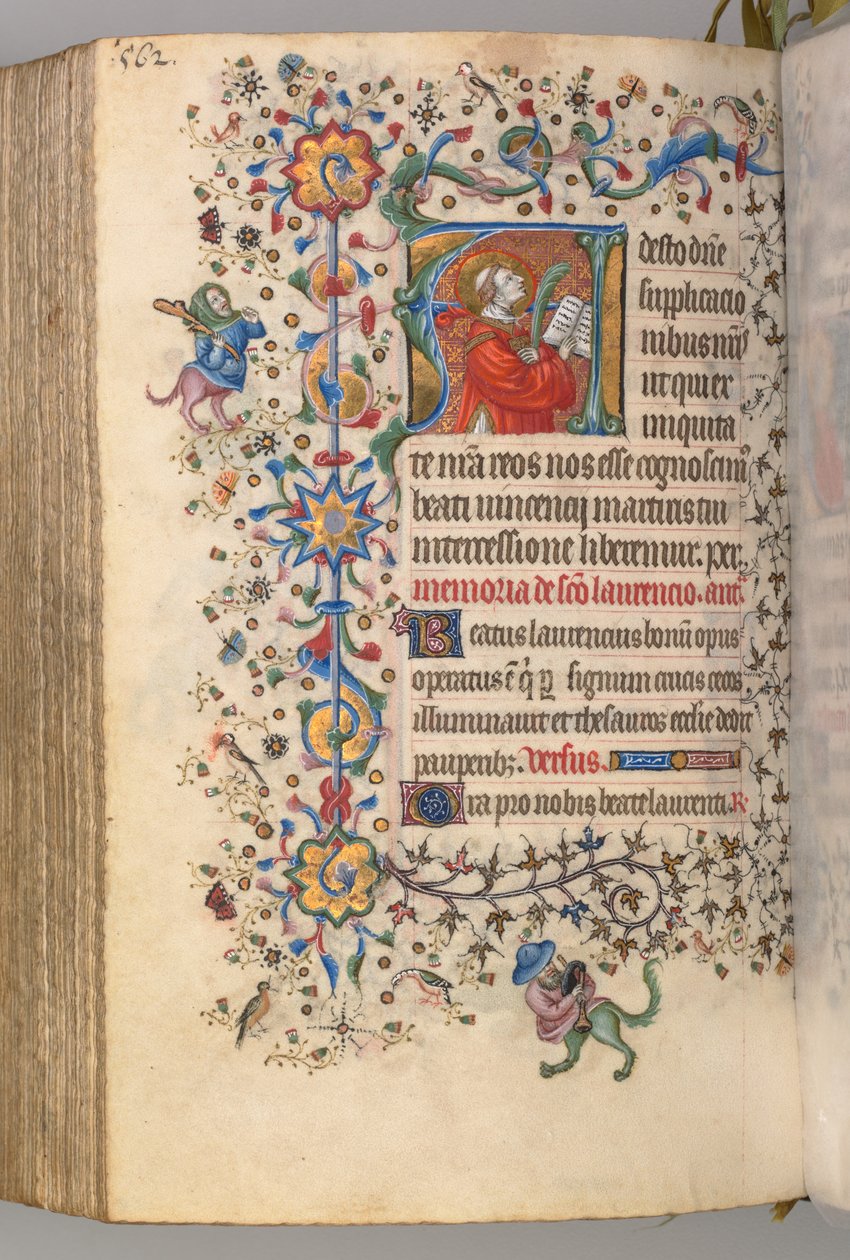 562.
Adesto dn̄e
supplicacio
nibus nr̄is
ut qui ex
iniquita
te nr̄a reos nos esse cognoscim᷒
beati uincencij martiris tui
intercessione liberemur. per.
memoria de sc̄o laurencio. anᵃ.
Beatus laurencius bonū opus
operatus ē q̇ ꝑ signum crucis cecos
illuminauit et thesauros ecclīe dedit
pauperibꝫ. versus.
Ora pro nobis beate laurenti. R̷